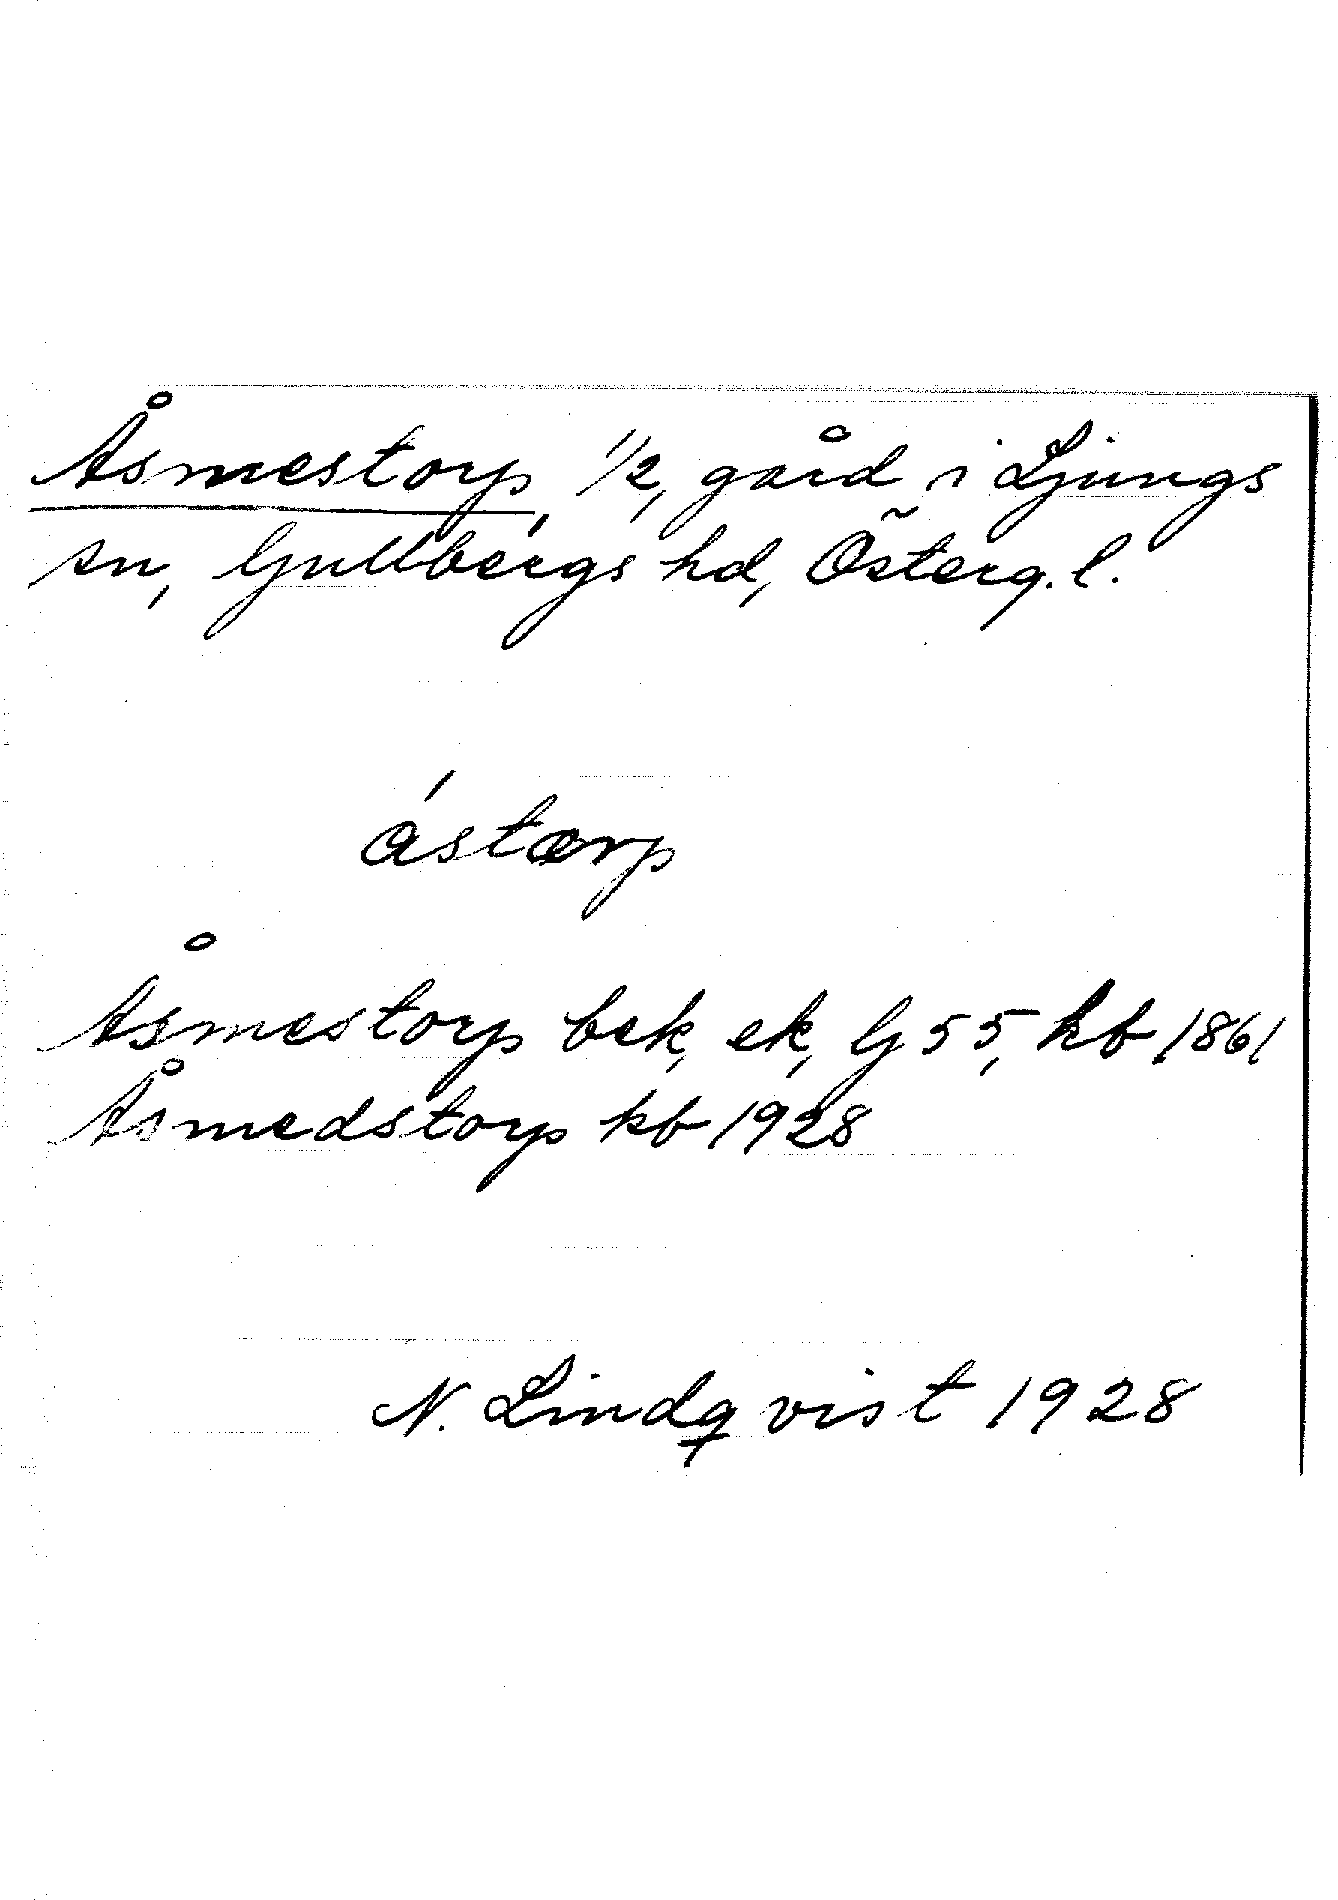 Åsmestorp, 1/2, gård i Ljungs
sn, Gullbergs hd, Österg. l.
ástærp
Åsmestorp bek, ek, G 55, kb 1861
Åsmedstorp kb 1928
N. Lindqvist 1928